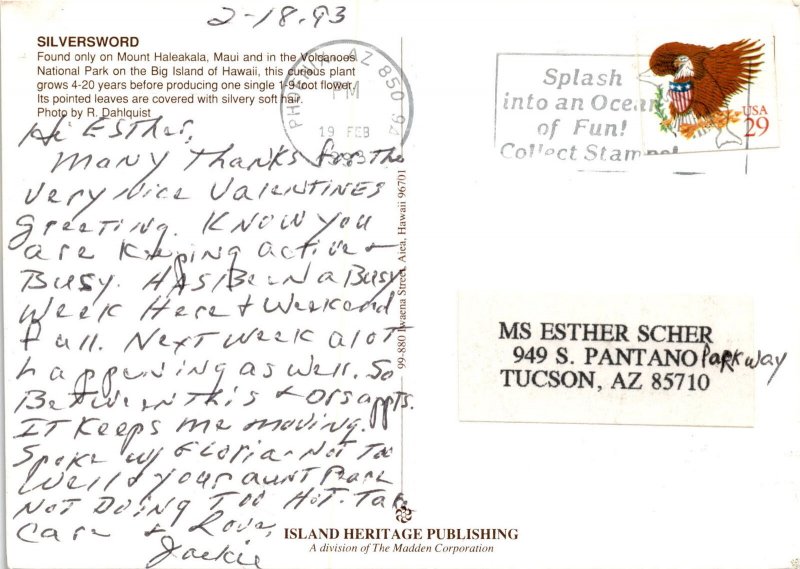 2-18.93
SILVERSWORD
Found only on Mount Haleakala, Maui and in the Volcanoes
National Park on the Big Island of Hawaii, this curious plant
grows 4-20 years before producing one single 1-9 foot flower.
Its pointed leaves are covered with silvery soft hair.
Photo by R. Dahlquist
Hi Esther,
Many Thanks for the
very nice Valentines
greeting. Know you
are keeping active +
Busy. Has Been a Busy
week Here + weekend
full. Next week a lot
happening as well. So
Between this + Drs appts.
IT Keeps me moving.
Spoke w/ Gloria - Not Too
Well + your aunt
NOT Doing Too Hot. Take
Care + Love,
Jackie
99-880 Iwaena Street, Aiea, Hawaii 96701
PHOENIX, AZ 850 92
PM
19 FEB
1993
Splash
into an Ocean
of Fun!
Collect Stamps!
USA
29
MS ESTHER SCHER
949 S. PANTANO Parkway
TUCSON, AZ 85710
ISLAND HERITAGE PUBLISHING
A division of The Madden Corporation